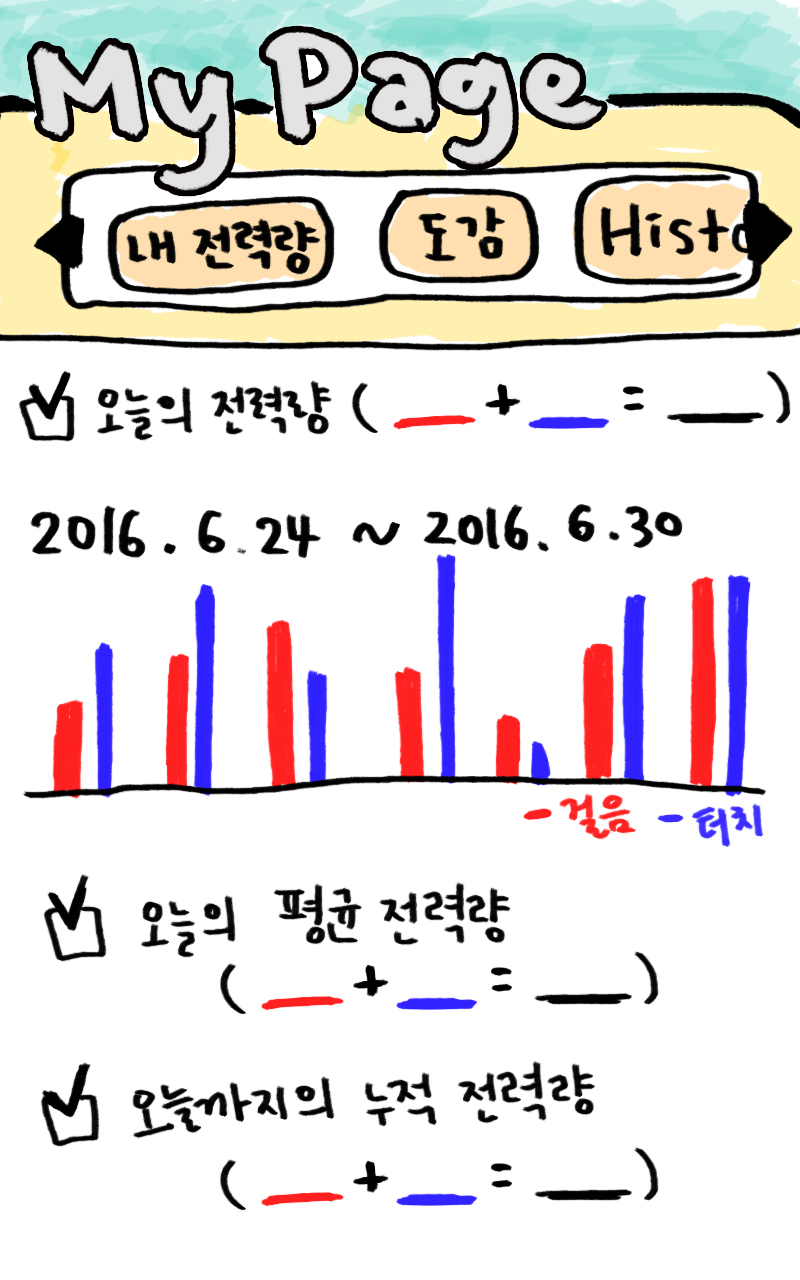 My Page
내 전력량 도감 Histo
오늘의 전력량 ( _ + _ = _ )
2016. 6. 24 ~ 2016. 6. 30
- 걸음 - 터치
오늘의 평균 전력량
( _ + _ = _ )
오늘까지의 누적 전력량
( _ + _ = _ )